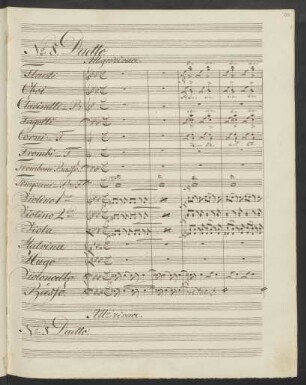 No 8 Duetto
Flauti
Oboi
Clarinetti in B
Fagotti
Corni in F
Trombe in F
Trombone Basso
Timpani in
Violino 1mo
Violino 2do
Viola
Malvina
Hugo
Violoncello
Basso
No 8 Duetto